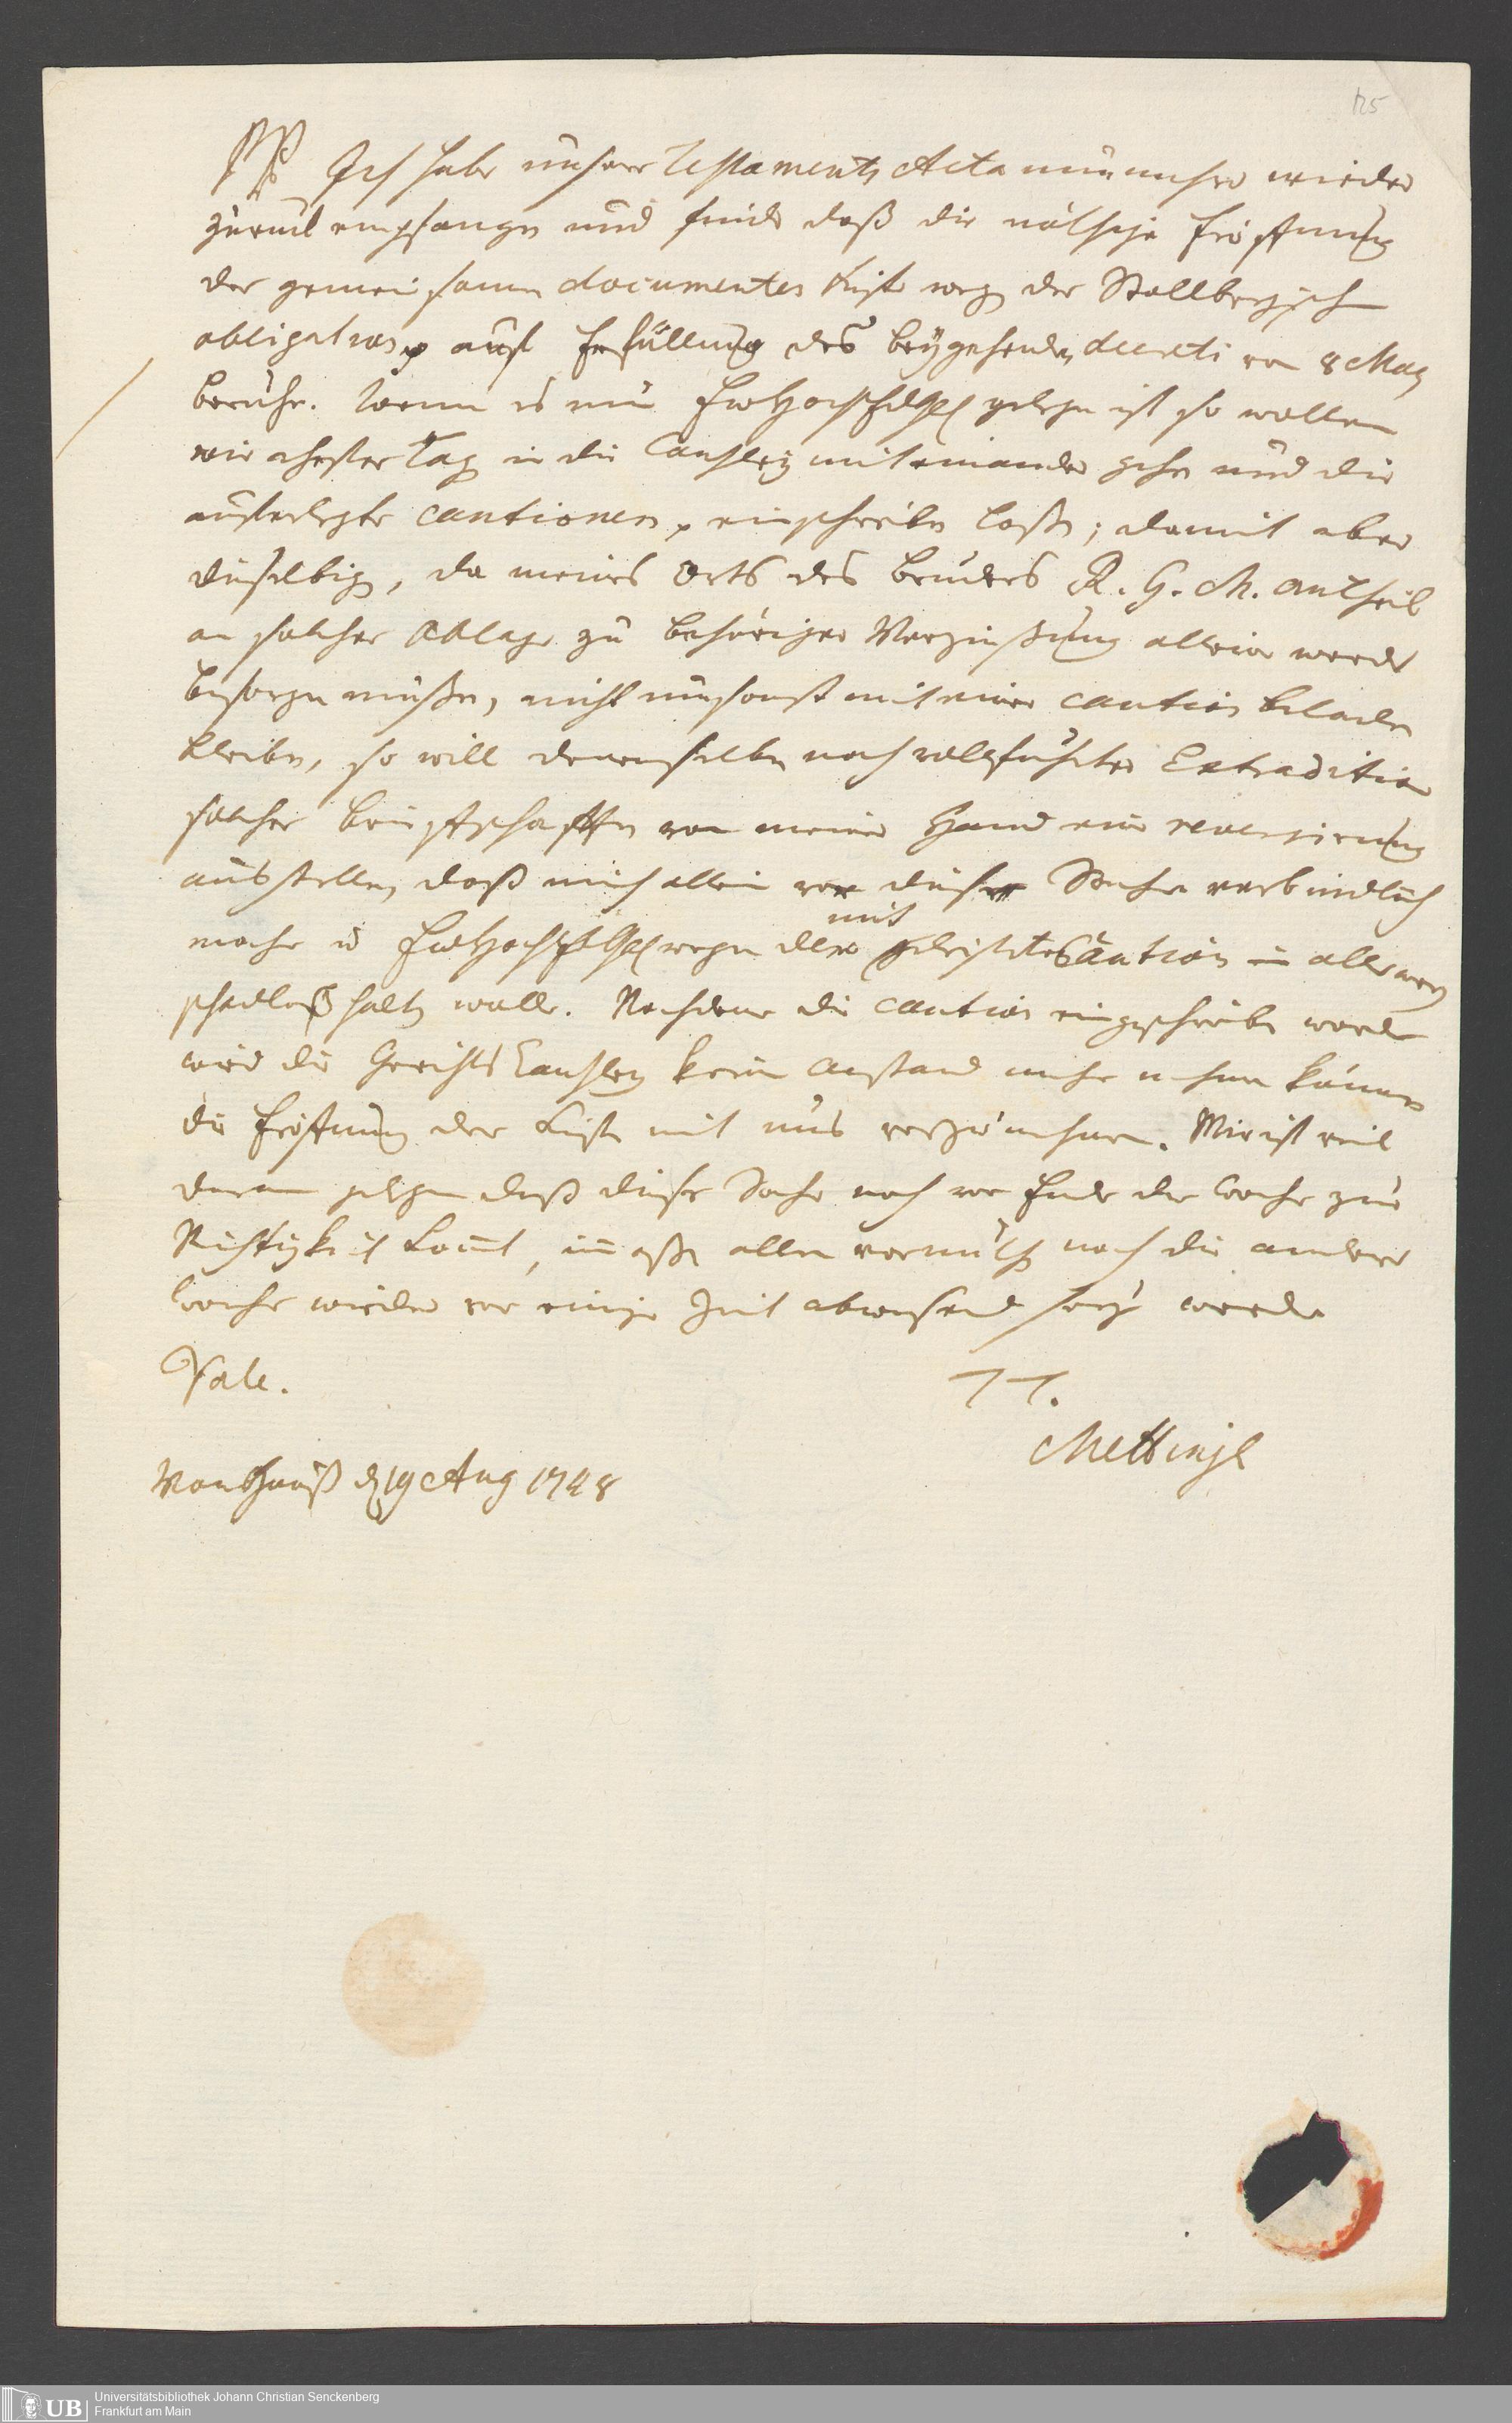 125
PP Ich habe unsere Testaments Acta nunmehro wieder
zuruck empfangen und finde daß die nöthige Eröffnung
der gemeinsamen documenten Kiste weg der Stollbergisch
obligation auf Erfüllung des beygehenden decreti vom 8 May
beruhe. Wenn es nun EwHochEdlgeb gelegen ist so wollen
wir ehester Tag in die Cantzley miteinander gehen und die
auferlegte cautionen einschreiben laßen; damit aber
dieselbige, da meines Orts des Bruders R. G. M. Antheil
an solcher Ablage zu behöriger Verzinßung allein werde
besorgen müßen, nicht umsonst mit einer caution beladen
bleiben, so will denenselben nach vollführter Extradition
solcher brieffschafften von meiner Hand eine reversirung
ausstellen, daß mich allein vor diese Sache verbindlich
mache u EwHochEdlgeb wegen der mit geleisteten Caution in alle weg
schadloß halten wolle. Nachdeme die caution eingeschrieben worden
wird die Gerichts Cantzley kein Anstand mehr nehmen können
die Eröffnung der Kiste mit uns vorzunehmen. Mir ist viel
daran gelegen daß diese Sache noch vor Ende der Woche zur
Richtigkeit komt, immaßen allem vermuthen nach die andere
Woche wieder vor einige Zeit abwesend seyn werde
Vale.
TT.
Mettingh
Von Hauß d 19 Aug 1748
UB Universitätsbibliothek Johann Christian Senckenberg
Frankfurt am Main